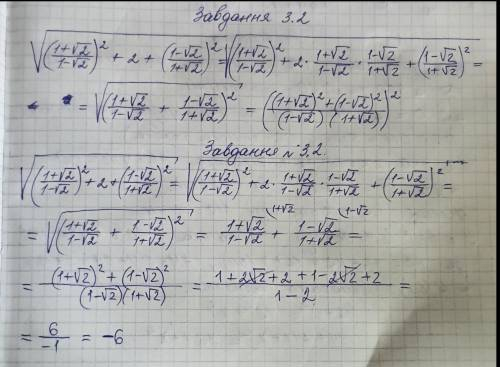 Завдання 3.2
√((1+√2)/(1-√2))² + 2 + ((1-√2)/(1+√2))² = √((1+√2)/(1-√2))² + 2 · (1+√2)/(1-√2) · (1-√2)/(1+√2) + ((1-√2)/(1+√2))² =
= √((1+√2)/(1-√2) + (1-√2)/(1+√2))² = (((1+√2)²+(1-√2)²)/((1-√2)(1+√2)))²
Завдання № 3.2.
√((1+√2)/(1-√2))² + 2 + ((1-√2)/(1+√2))² = √((1+√2)/(1-√2))² + 2 · (1+√2)/(1-√2) · (1-√2)/(1+√2) + ((1-√2)/(1+√2))² =
= √((1+√2)/(1-√2) + (1-√2)/(1+√2))² = (1+√2)/(1-√2) (1+√2 + (1-√2)/(1+√2) (1-√2 =
= ((1+√2)² + (1-√2)²)/((1-√2)(1+√2)) = (1+2√2+2+1-2√2+2)/(1-2) =
= 6/-1 = -6